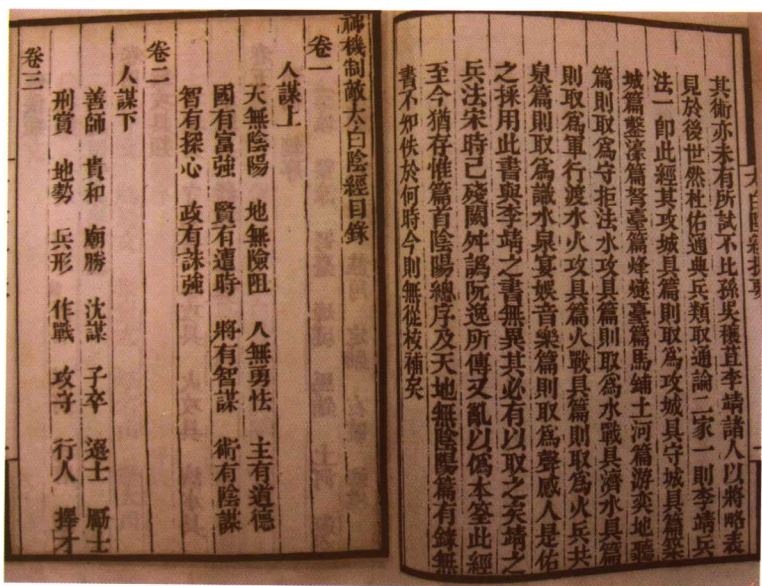 太白陰經提要
其術亦未有所試不比孫吳穰苴李靖諸人以將略表
見於後世然杜佑通典兵類取通論二家一則李靖兵
法一卽此經其攻城具篇則取爲攻城具守城具篇築
城篇鑿濠篇弩臺篇烽燧臺篇馬鋪土河篇游奕地聽
篇則取爲守拒法水攻具篇則取爲水戰具濟水具篇
則取爲軍行渡水火攻具篇火戰具篇則取爲火兵共
泉篇則取爲識水泉宴娛音樂篇則取爲聲感人是佑
之採用此書與李靖之書無異其必有以取之矣靖之
兵法宋時已殘闕舛譌阮逸所傳又亂以僞本筌此經
至今猶存惟篇首陰陽總序及天地無陰陽篇有錄無
書不知佚於何時今則無從校補矣
神機制敵太白陰經目錄
卷一
人謀上
天無陰陽 地無險阻 人無勇怯 主有道德
國有富強 賢有遭時 將有智謀 術有陰謀
智有探心 政有誅強
卷二
人謀下
善師 貴和 廟勝 沈謀 子卒 選士 勵士
刑賞 地勢 兵形 作戰 攻守 行人 擇才
卷三